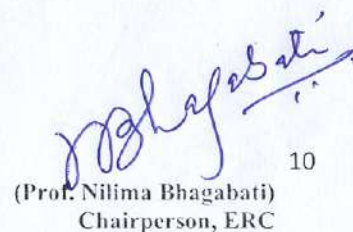 NBhagabati
10
(Prof. Nilima Bhagabati)
Chairperson, ERC